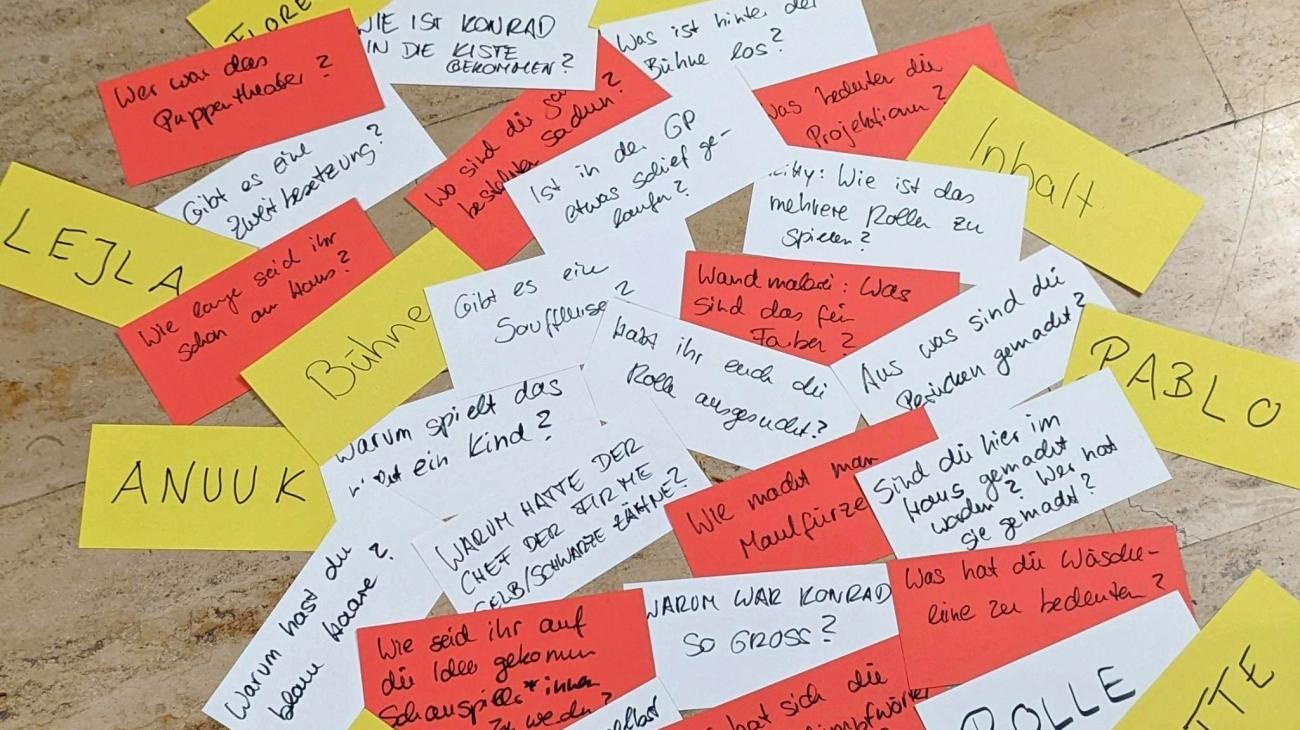 FLORE
WIE IST KONRAD
IN DIE KISTE
BEKOMMEN?
Was ist hinter der
Bühne los?
Wer war das
Puppentheater?
Wo sind die
bestellten Sachen?
Was bedeuten die
Projektionen?
Inhalt
Gibt es eine
Zweitbesetzung?
Ist in der GP
etwas schief ge-
laufen?
Wie ist das
mehrere Rollen zu
spielen?
LEJLA
Wie lange seid ihr
schon am Haus?
Bühne
Gibt es eine
Souffleuse?
Wandmalerei: Was
sind das für
Farben?
Aus was sind die
Perücken gemacht?
Habt ihr euch die
Rolle ausgesucht?
PABLO
ANUUK
Warum spielt das
ein Kind?
WARUM HATTE DER
CHEF DER FIRME
GELB/SCHWARZE ZÄHNE?
Wie macht man
Maulfürze
Sind die hier im
Haus gemacht
worden? Wer hat
sie gemacht?
Warum hast du
blaue Haare?
Wie seid ihr auf
die Idee gekommen
Schauspieler*innen
zu werden?
WARUM WAR KONRAD
SO GROSS?
Was hat die Wäsche-
leine zu bedeuten?
hat sich die
ROLLE
TTE